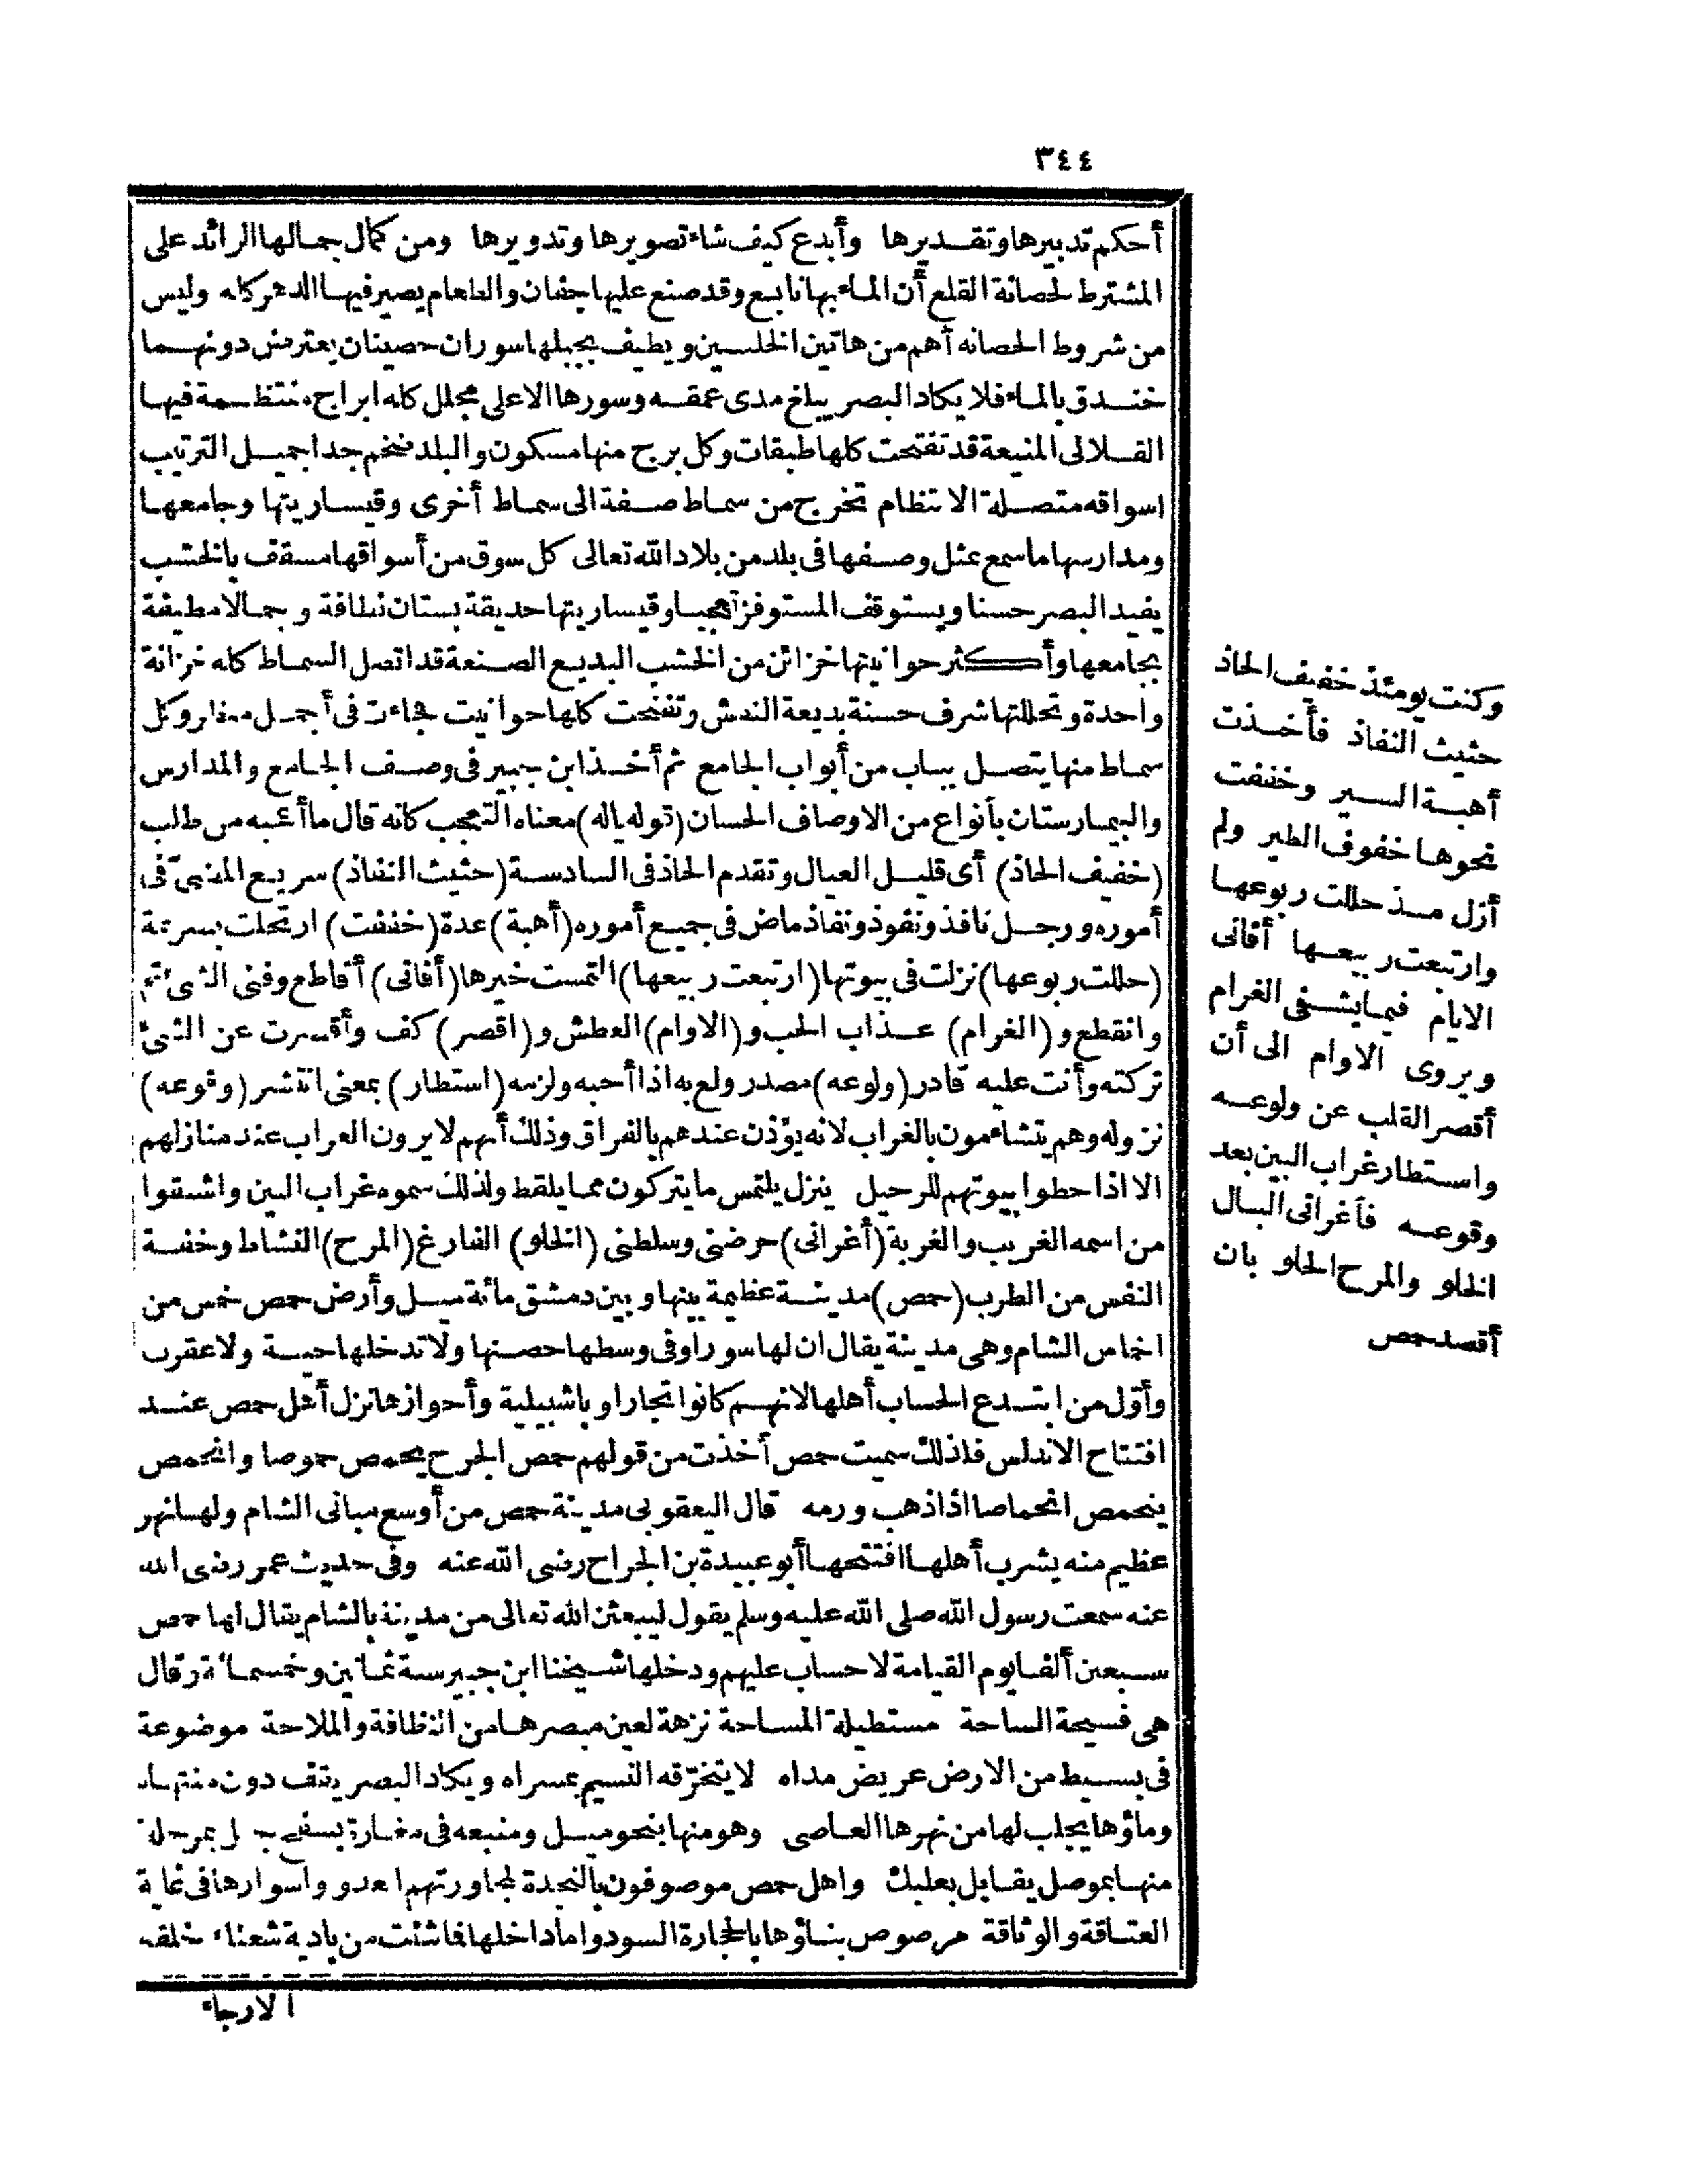 ٣٤٤
أحكم تدبيرها وتقديرها وأبدع كيف شاء تصويرها وتدويرها ومن كمال جمالها الرائد على
المشترط لحصانة القلع أن الماء بها نابع وقد صنع عليها جفنان والطعام يصير فيها الدهر كله وليس
من شروط الحصانه أهم من هاتين الخلتين ويطيف بجبلها سوران حصينان يعترض دونهما
خندق بالماء فلا يكاد البصر يبلغ مدى عمقه وسورها الاعلى مجلل كله ابراج منتظمة فيها
القلالى المنيعة قد تفتحت كلها طبقات وكل برج منها مسكون والبلد ضخم جدا جميل الترتيب
اسواقه متصلة الانتظام تخرج من سماط صفة الى سماط أخرى وقيساريتها وجامعها
ومدارسها ما سمع بمثل وصفها فى بلد من بلاد الله تعالى كل سوق من أسواقها مسقف بالخشب
يفيد البصر حسنا ويستوقف المستوفز تعجبا وقيساريتها حديقة بستان نظافة وجمالا مطيفة
بجامعها وأكثر حوانيتها خزائن من الخشب البديع الصنعة قد اتصل السماط كله خزانة
واحدة وتخللتها شرف حسنة بديعة النقش وتفتحت كلها حوانيت فجاءت فى أجمل منظر وكل
سماط منها يتصل بباب من أبواب الجامع ثم أخذ ابن جبير فى وصف الجامع والمدارس
والبيمارستان بأنواع من الاوصاف الحسان (قوله ياله) معناه التعجب كانه قال ما أعجبه من طلب
(خفيف الحاذ) أى قليل العيال وتقدم الحاذ فى السادسة (حثيث النفاذ) سريع المضىّ فى
أموره ورجل نافذ ونفوذ ونفاذ ماض فى جميع أموره (أهبة) عدة (خففت) ارتحلت بسرعة
(حللت ربوعها) نزلت فى بيوتها (ارتبعت ربيعها) التمست خيرها (أفانى) أقاطع وفنى الشئ تم
وانقطع و (الغرام) عذاب الحب و (الاوام) العطش و (اقصر) كف وأقصرت عن الشئ
تركته وأنت عليه قادر (ولوعه) مصدر ولع به اذا أحبه ولزمه (استطار) بمعنى انتشر (وقوعه)
نزوله وهم يتشاءمون بالغراب لانه يؤذن عندهم بالفراق وذلك أنهم لا يرون الغراب عند منازلهم
الا اذا حطوا بيوتهم للرحيل ينزل يلتمس ما يتركون مما يلقط ولذلك سموه غراب البين واشتقوا
من اسمه الغريب والغربة (أغرانى) حرضنى وسلطنى (الخلو) الفارغ (المرح) النشاط وخفة
النفس من الطرب (حمص) مدينة عظيمة بينها وبين دمشق مائة ميل وأرض حمص خمس من
اخماس الشام وهى مدينة يقال ان لها سورا وفى وسطها حصنها ولا تدخلها حية ولا عقرب
وأوّل من ابتدع الحساب أهلها لانهم كانوا تجارا وباشبيلية وأحوازها نزل أهل حمص عند
افتتاح الاندلس فلذلك سميت حمص أخذت من قولهم حمص الجرح يحمص حموصا وانحمص
ينحمص انحماصا اذا ذهب ورمه قال اليعقوبى مدينة حمص من أوسع مبانى الشام ولها نهر
عظيم منه يشرب أهلها افتتحها أبو عبيدة بن الجراح رضى الله عنه وفى حديث عمر رضى الله
عنه سمعت رسول الله صلى الله عليه وسلم يقول ليبعثن الله تعالى من مدينة بالشام يقال لها حمص
سبعين ألفا يوم القيامة لا حساب عليهم ودخلها شيخنا ابن جبير سنة ثمانين وخمسمائة وقال
هى فسيحة الساحة مستطيلة المساحة نزهة لعين مبصرها من النظافة والملاحة موضوعة
فى بسيط من الارض عريض مداه لا يتخرّقه النسيم بمسراه ويكاد البصر يقف دون منتهاه
وماؤها يجلب لها من نهرها العاصى وهو منها بنحو ميل ومنبعه فى مغارة بسفح جبل بمرحلة
منها بموصل يقابل بعلبك واهل حمص موصوفون بالنجدة لمجاورتهم العدو واسوارها فى غاية
العتاقة والوثاقة مرصوص بناؤها بالحجارة السود واما داخلها فما شئت من بادية شعثاء خلقة
الارجاء
وكنت يومئذ خفيف الحاذ
حثيث النفاذ فأخذت
أهبة السير وخففت
نحوها خفوف الطير ولم
أزل مذ حللت ربوعها
وارتبعت ربيعها أفانى
الايام فيما يشفى الغرام
ويروى الاوام الى أن
أقصر القلب عن ولوعه
واستطار غراب البين بعد
وقوعه فأغرانى البال
الخلو والمرح الحلو بان
أقصد حمص